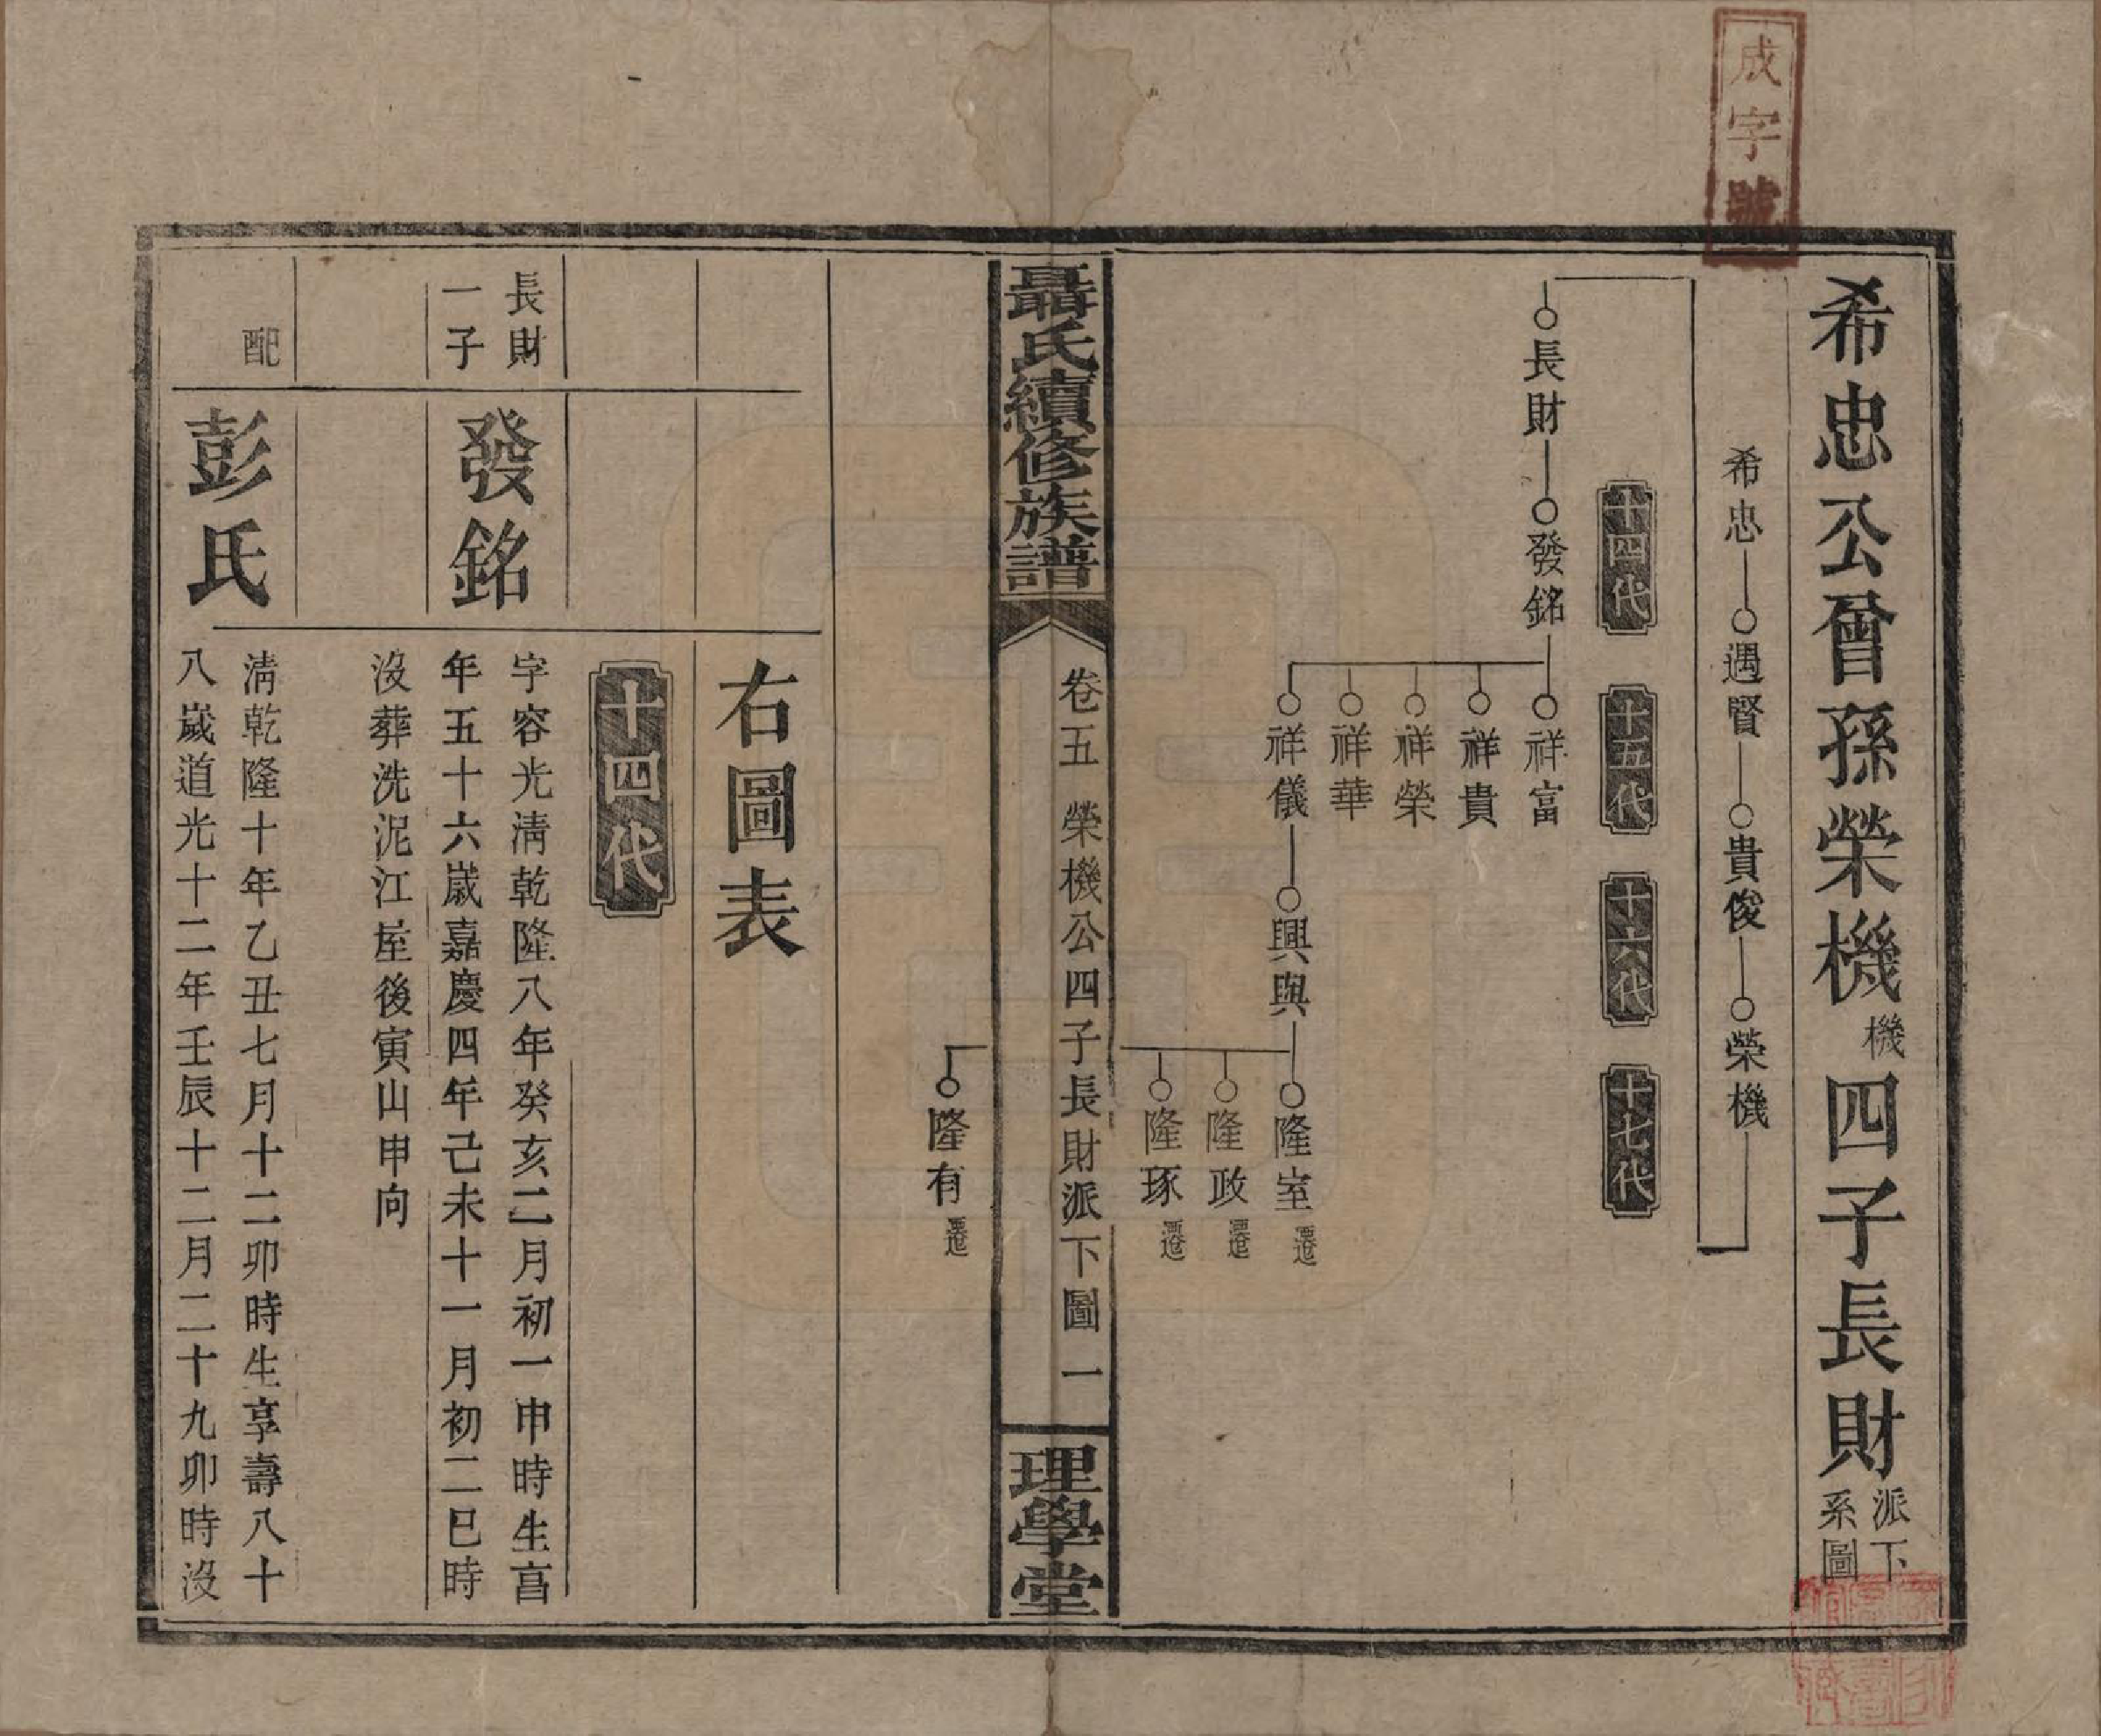 成字號
希忠公曾孫榮機機四子長財派下系圖
希忠 遇賢 貴俊 榮機
十四代 十五代 十六代 十七代
長財 發銘 祥富
祥貴
祥榮
祥華
祥儀 興與 隆室遷
隆政遷
隆琢遷
聶氏續修族譜 卷五 榮機公四子長財派下圖 一 理學堂
隆有遷
右圖表
十四代
長財
一子
發銘
字容光清乾隆八年癸亥二月初一申時生亯
年五十六歲嘉慶四年己未十一月初二巳時
沒葬洗泥江屋後寅山申向
配
彭氏
清乾隆十年乙丑七月十二卯時生享壽八十
八歲道光十二年壬辰十二月二十九卯時沒